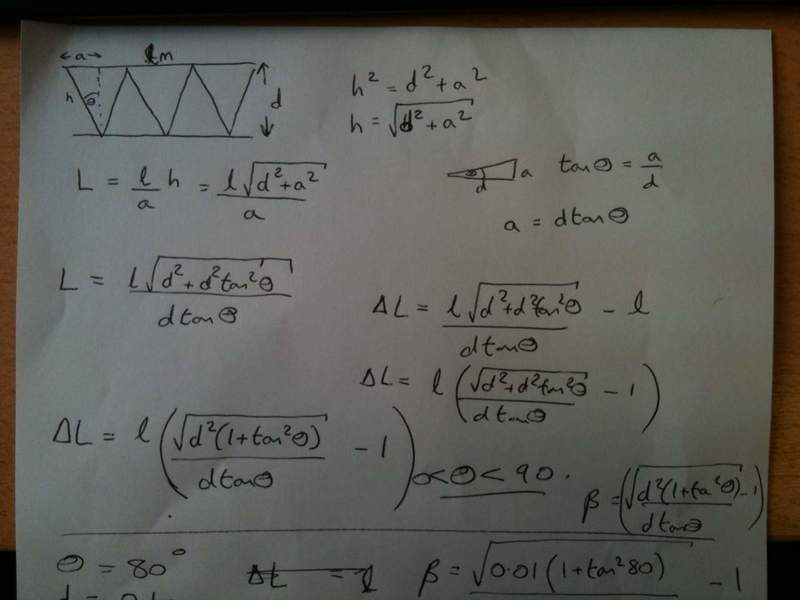 a
lm
h
θ
d
h² = d² + a²
h = √(d² + a²)
L = l/a h = l√(d² + a²)/a
θ
d
a
tanθ = a/d
a = d tanθ
L = l√(d² + d²tan²θ)/(d tanθ)
ΔL = l√(d² + d²tan²θ)/(d tanθ) - l
ΔL = l(√(d² + d²tan²θ)/(d tanθ) - 1)
ΔL = l(√(d²(1 + tan²θ))/(d tanθ) - 1)
0 < θ < 90.
β = (√(d²(1 + ta²θ))/(d tanθ) - 1)
θ = 80°
β = √(0.01(1 + tan²80)) - 1